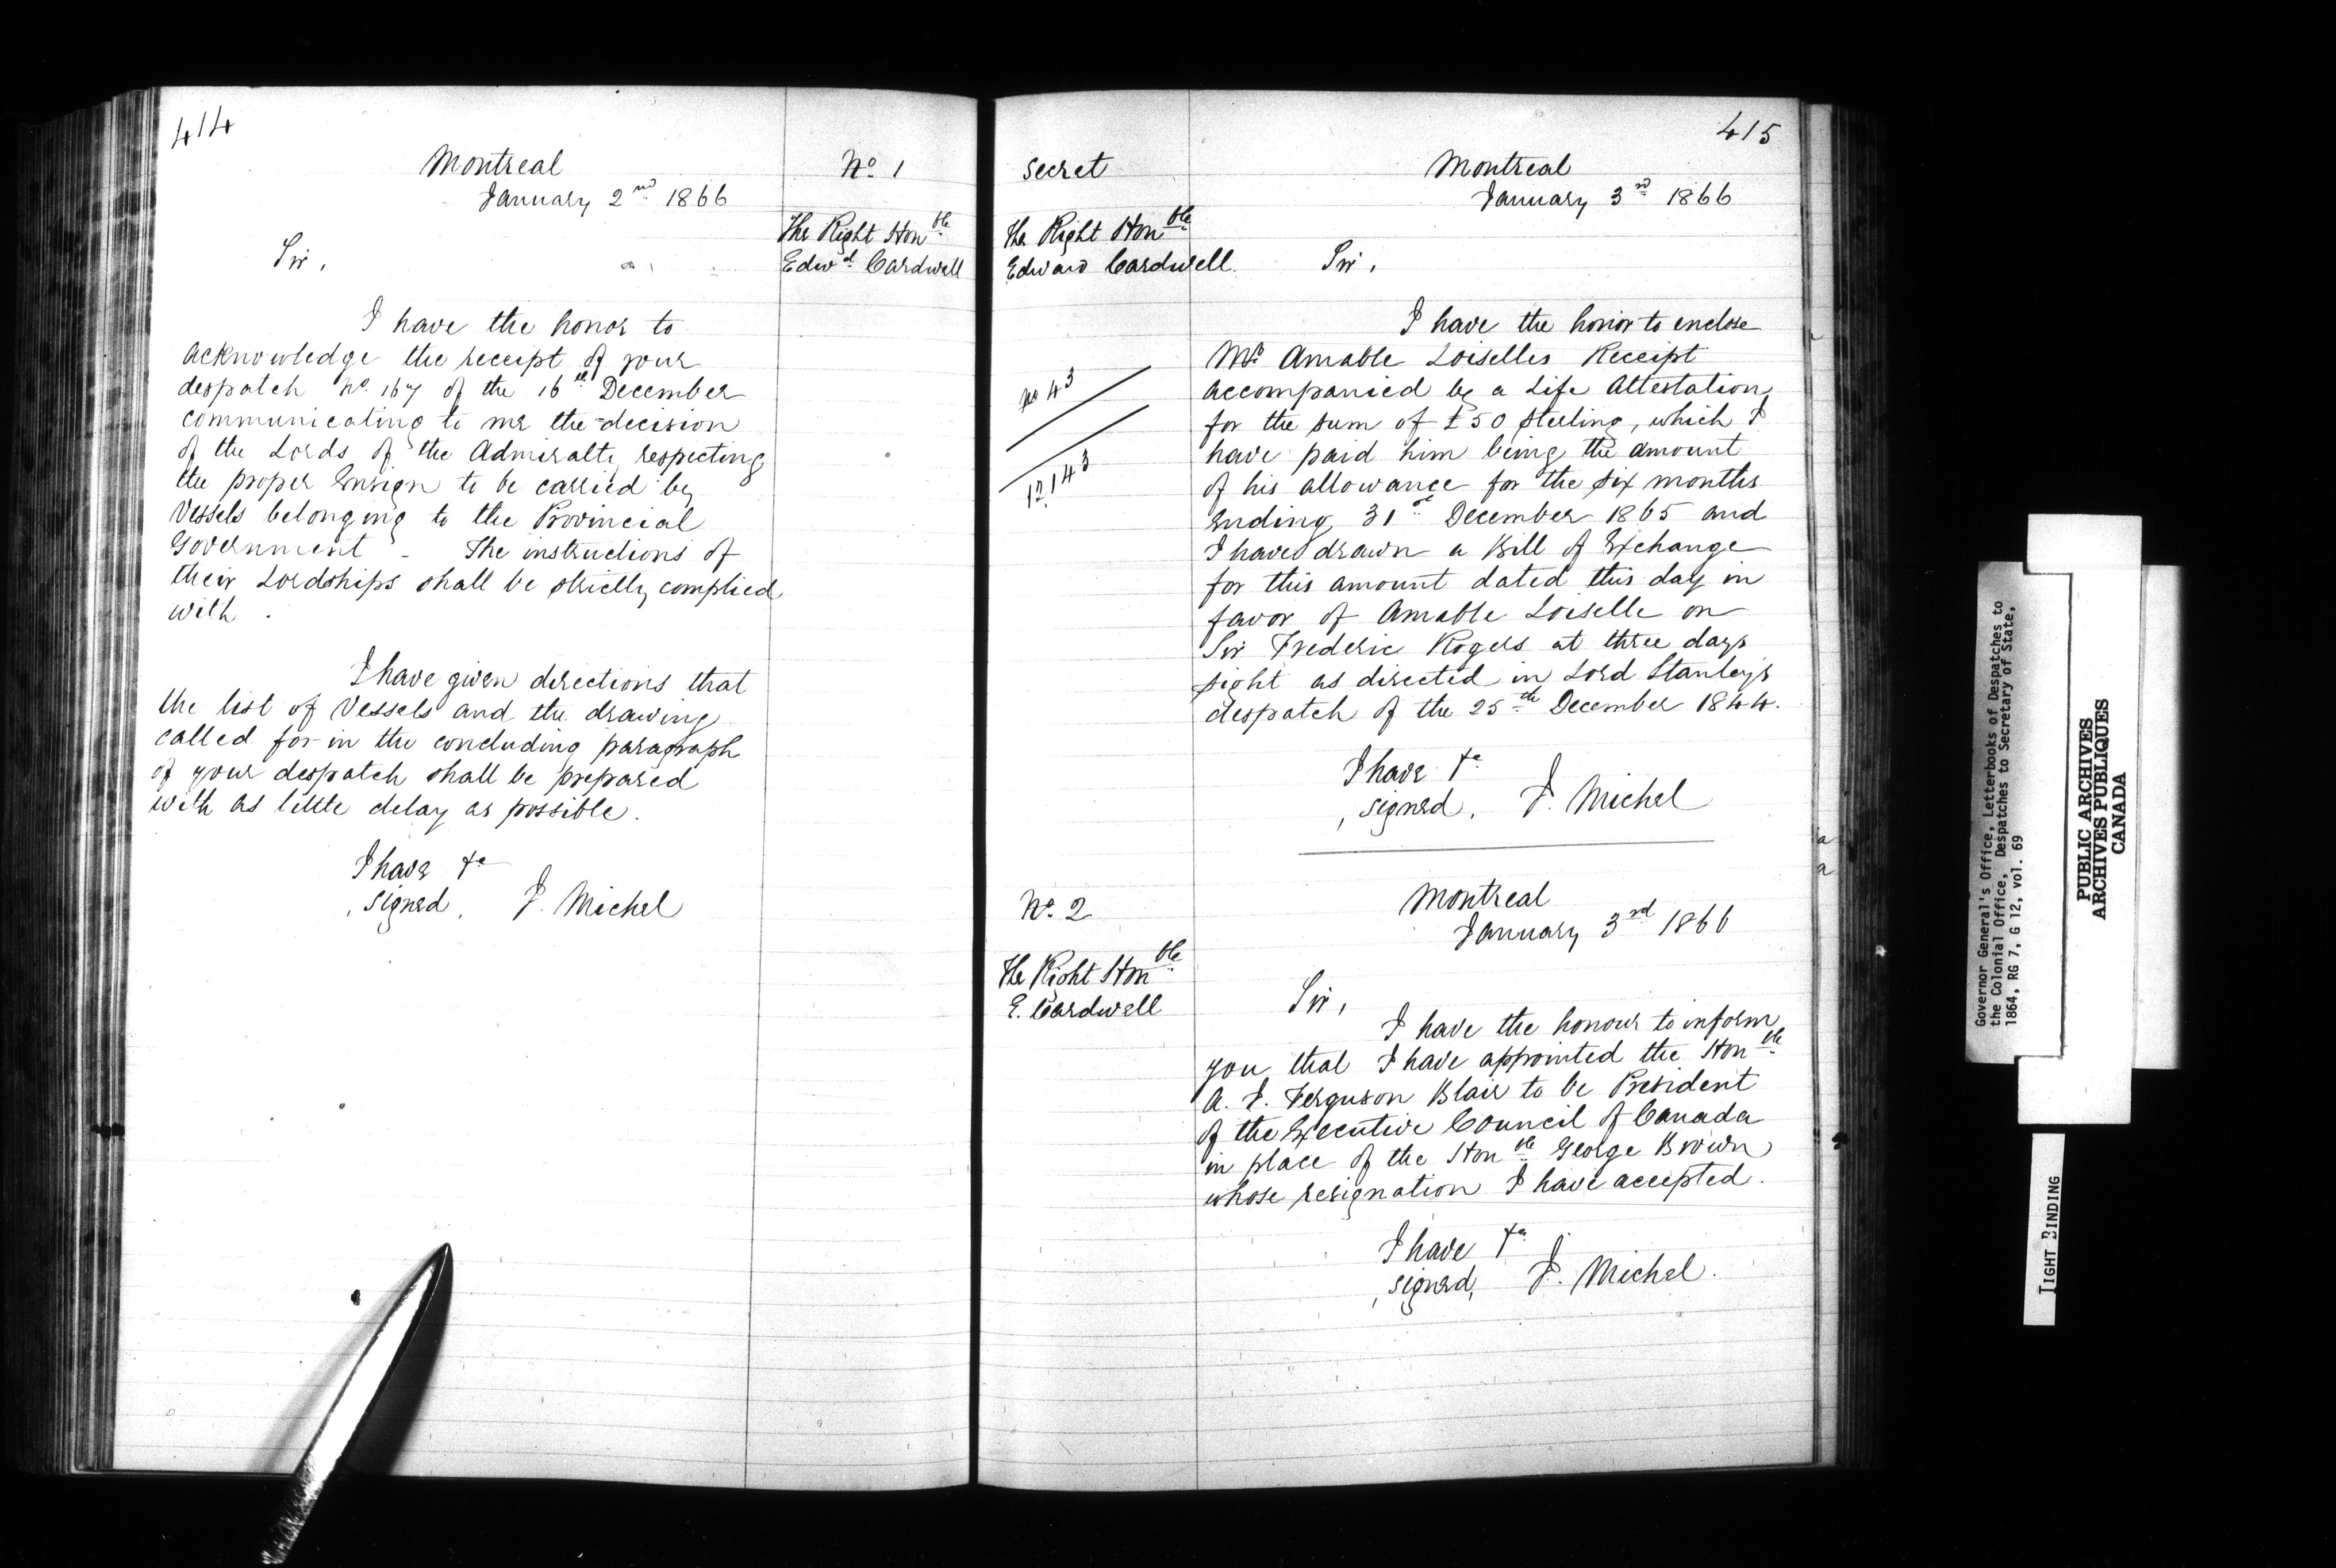 414
Montreal
January 2nd 1866
No 1
The Right Honble
Edwd Cardwell
Sir,
I have the honor to
acknowledge the receipt of your
despatch No 167 of the 16th December
communicating to me the decision
of the Lords of the Admiralty respecting
the proper Ensign to be carried by
Vessels belonging to the Provincial
Government - The instructions of
their Lordships shall be strictly complied
with.
I have given directions that
the list of Vessels and the drawing
called for in the concluding paragraph
of your despatch shall be prepared
with as little delay as possible.
I have &c
signed. J. Michel
415
Secret
Montreal
January 3rd 1866
The Right Honble
Edward Cardwell.
Sir,
I have the honor to enclose
Mr Amable Loiselles Receipt
accompanied by a Life Attestation
for the sum of £50 sterling, which I
have paid him being the amount
of his allowance for the six months
ending 31st December 1865 and
I have drawn a Bill of Exchange
for this amount dated this day in
favor of Amable Loiselle on
Sir Frederic Rogers at three days
sight as directed in Lord Stanleys
despatch of the 25th December 1844.
I have &c
signed. J. Michel
No 2
Montreal
January 3rd 1866
The Right Honble
E. Cardwell
Sir,
I have the honour to inform
you that I have appointed the Honble
A. J. Ferguson Blair to be President
of the Executive Council of Canada
in place of the Honble George Brown
whose resignation I have accepted.
I have &c
signed, J. Michel.
Governor General's Office, Letterbooks of Despatches to
the Colonial Office, Despatches to Secretary of State,
1864, RG 7, G 12, vol. 69
PUBLIC ARCHIVES
ARCHIVES PUBLIQUES
CANADA
TIGHT BINDING